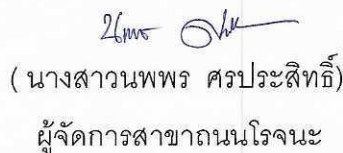 ( นางสาวนพพร ศรประสิทธิ์)
ผู้จัดการสาขาถนนโรจนะ